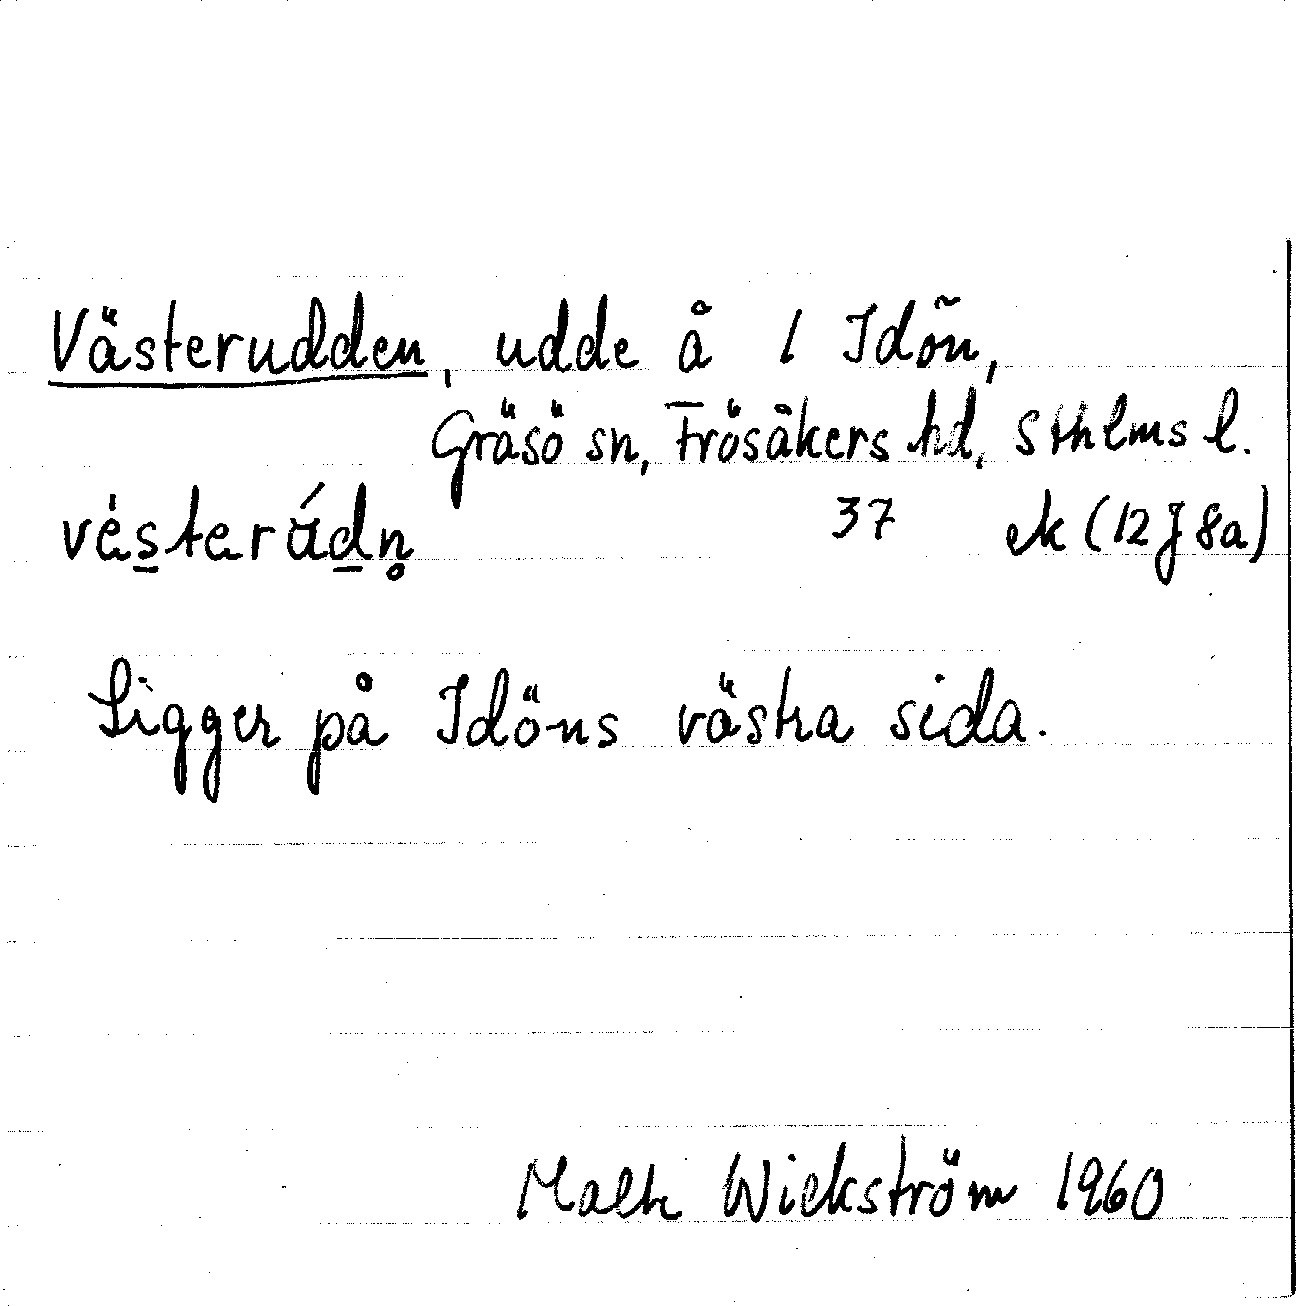 Västerudden, udde å 1 Idön,
Gräsö sn, Frösåkers hd, Sthlms l.
37 ek (12J8a)
Ligger på Idöns västra sida.
Malte Wickström 1960